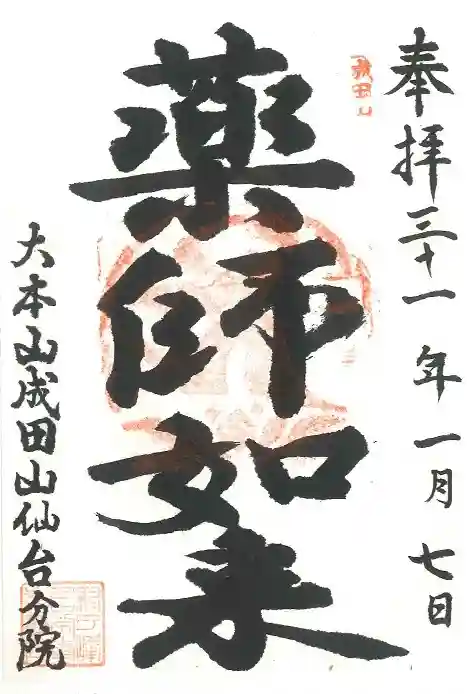 奉拝 三十一年 一月 七日
成田山
薬師如来
大本山成田山仙台分院